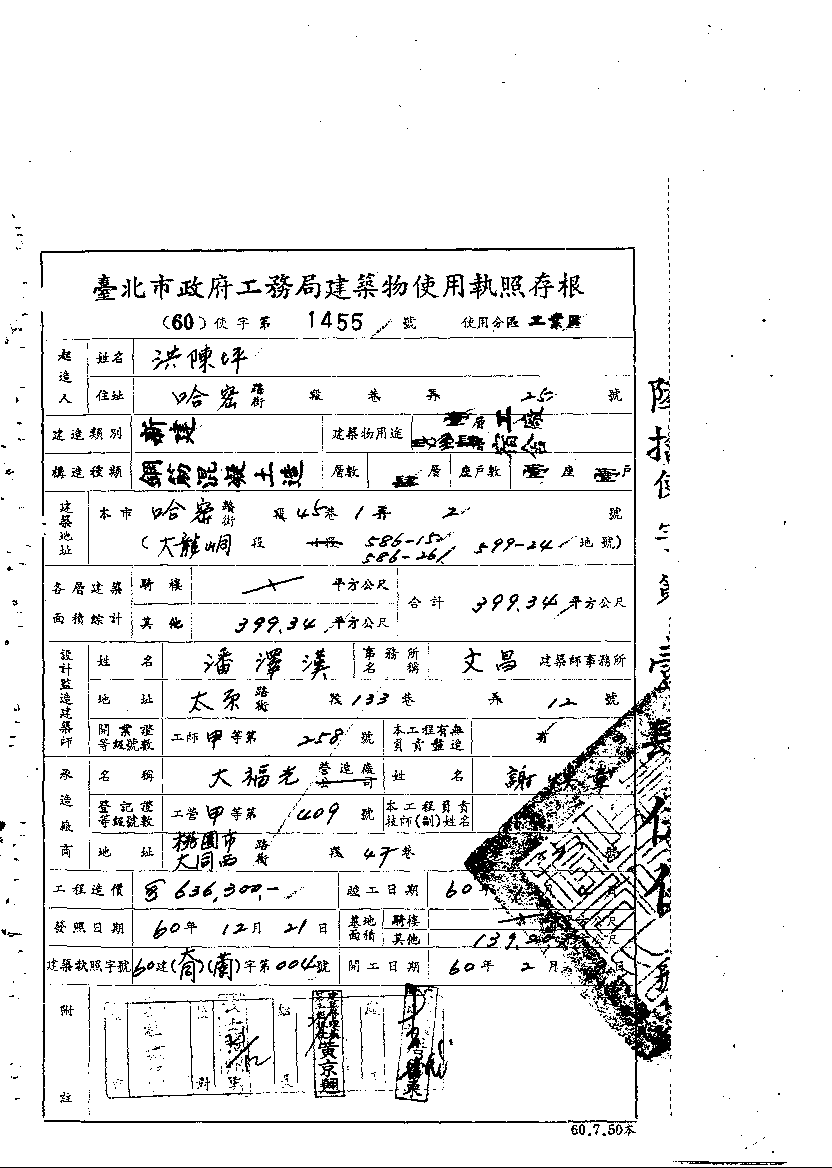 臺北市政府工務局建築物使用執照存根
(60)使字第 1455 號 使用分區 工業區
起造人 姓名 洪陳坪
住址 哈密路街 段 巷 弄 25 號
建造類別 新建 建築物用途 壹層工廠 宿舍
構造種類 鋼筋混凝土造 層數 肆層 座戶數 壹座 壹戶
建築地址 本市 哈密路街 段 45巷 1弄 2 號
(大龍峒段 小段 586-152 586-261 599-241 地號)
各層建築面積綜計 騎樓 平方公尺 合計 399.34 平方公尺
其他 399.34 平方公尺
設計監造建築師 姓名 潘澤漢 事務所名稱 文昌 建築師事務所
地址 太原路街 段 133巷 弄 12 號
開業證等級號數 工師甲等第 258 號 本工程有無負責監造 有
承造廠商 名稱 大福光 營造廠公司 姓名 謝
登記證等級號數 工營甲等第 409 號 本工程負責技師(副)姓名
地址 桃園市大同西路街 段 47巷 號
工程造價 636,300.- 竣工日期 60年 月
發照日期 60年 12月 21日 基地面積 騎樓 公尺
其他 139. 公尺
建築執照字號 60建(大同)(蘭)字第004號 開工日期 60年 2月
附註
黃京翹
60.7.50本